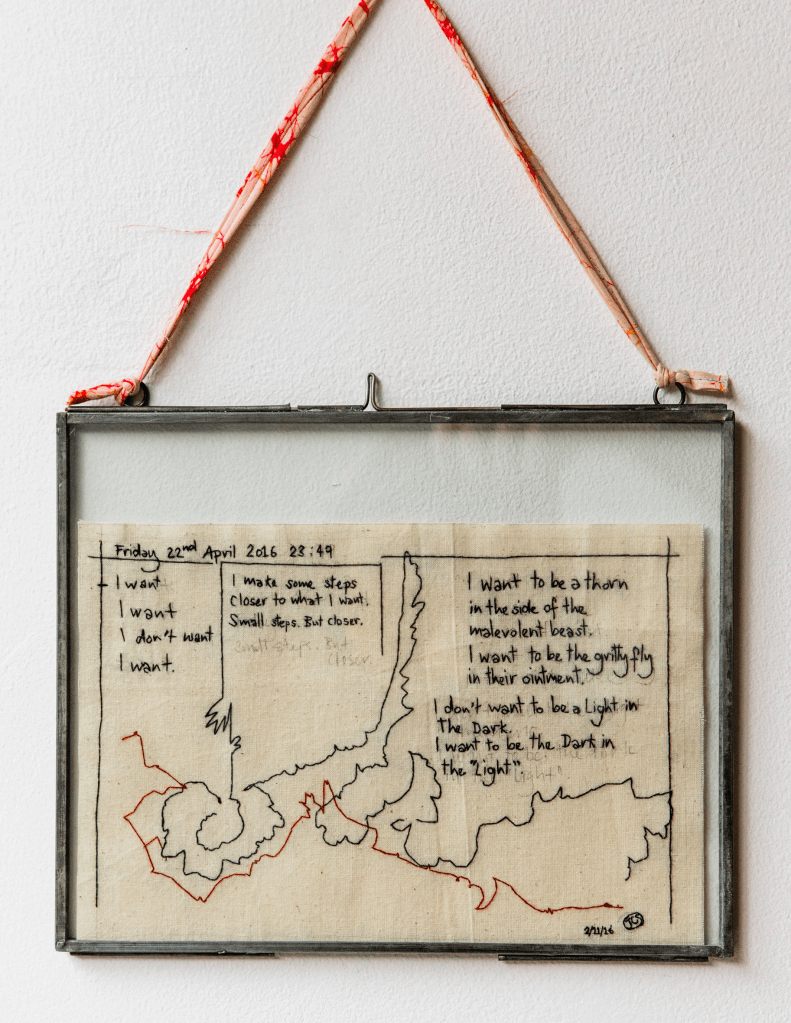 Friday 22nd April 2016 23:49
I want
I want
I don't want
I want.
I make some steps
Closer to what I want.
Small steps. But closer.
Small steps. But
Closer.
I want to be a thorn
in the side of the
malevolent beast.
I want to be the gritty fly
in their ointment.
I don't want to be a Light in
the Dark.
I want to be the Dark in
the "Light".
2/11/16